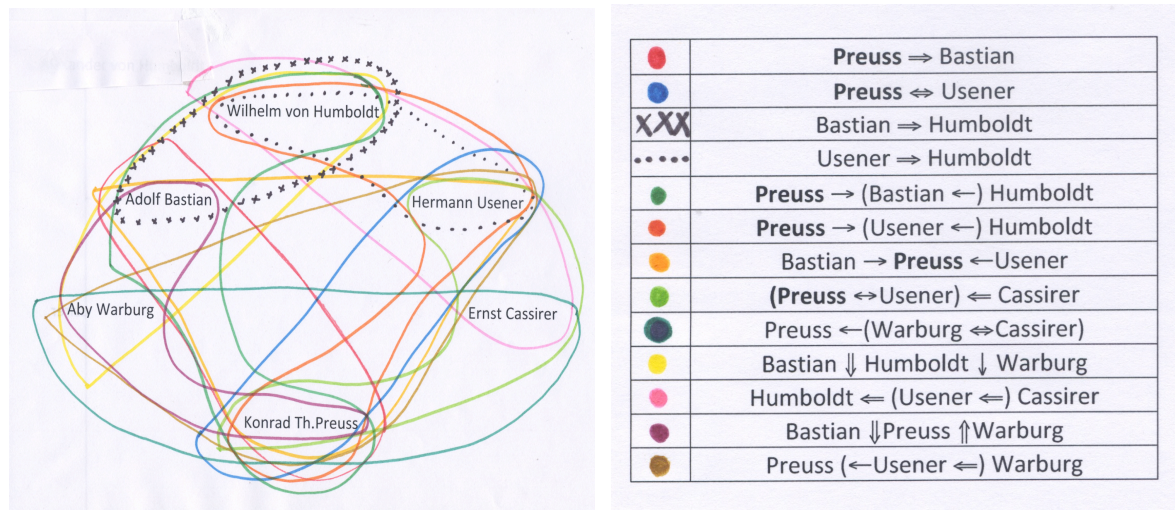 Wilhelm von Humboldt
Adolf Bastian
Hermann Usener
Aby Warburg
Ernst Cassirer
Konrad Th.Preuss
Preuss ⇒ Bastian
Preuss ⇔ Usener
Bastian ⇒ Humboldt
Usener ⇒ Humboldt
Preuss → (Bastian ←) Humboldt
Preuss → (Usener ←) Humboldt
Bastian → Preuss ←Usener
(Preuss ↔Usener) ⇐ Cassirer
Preuss ←(Warburg ⇔Cassirer)
Bastian ⇓ Humboldt ↓ Warburg
Humboldt ⇐ (Usener ⇐) Cassirer
Bastian ⇓Preuss ⇑Warburg
Preuss (←Usener ⇐) Warburg